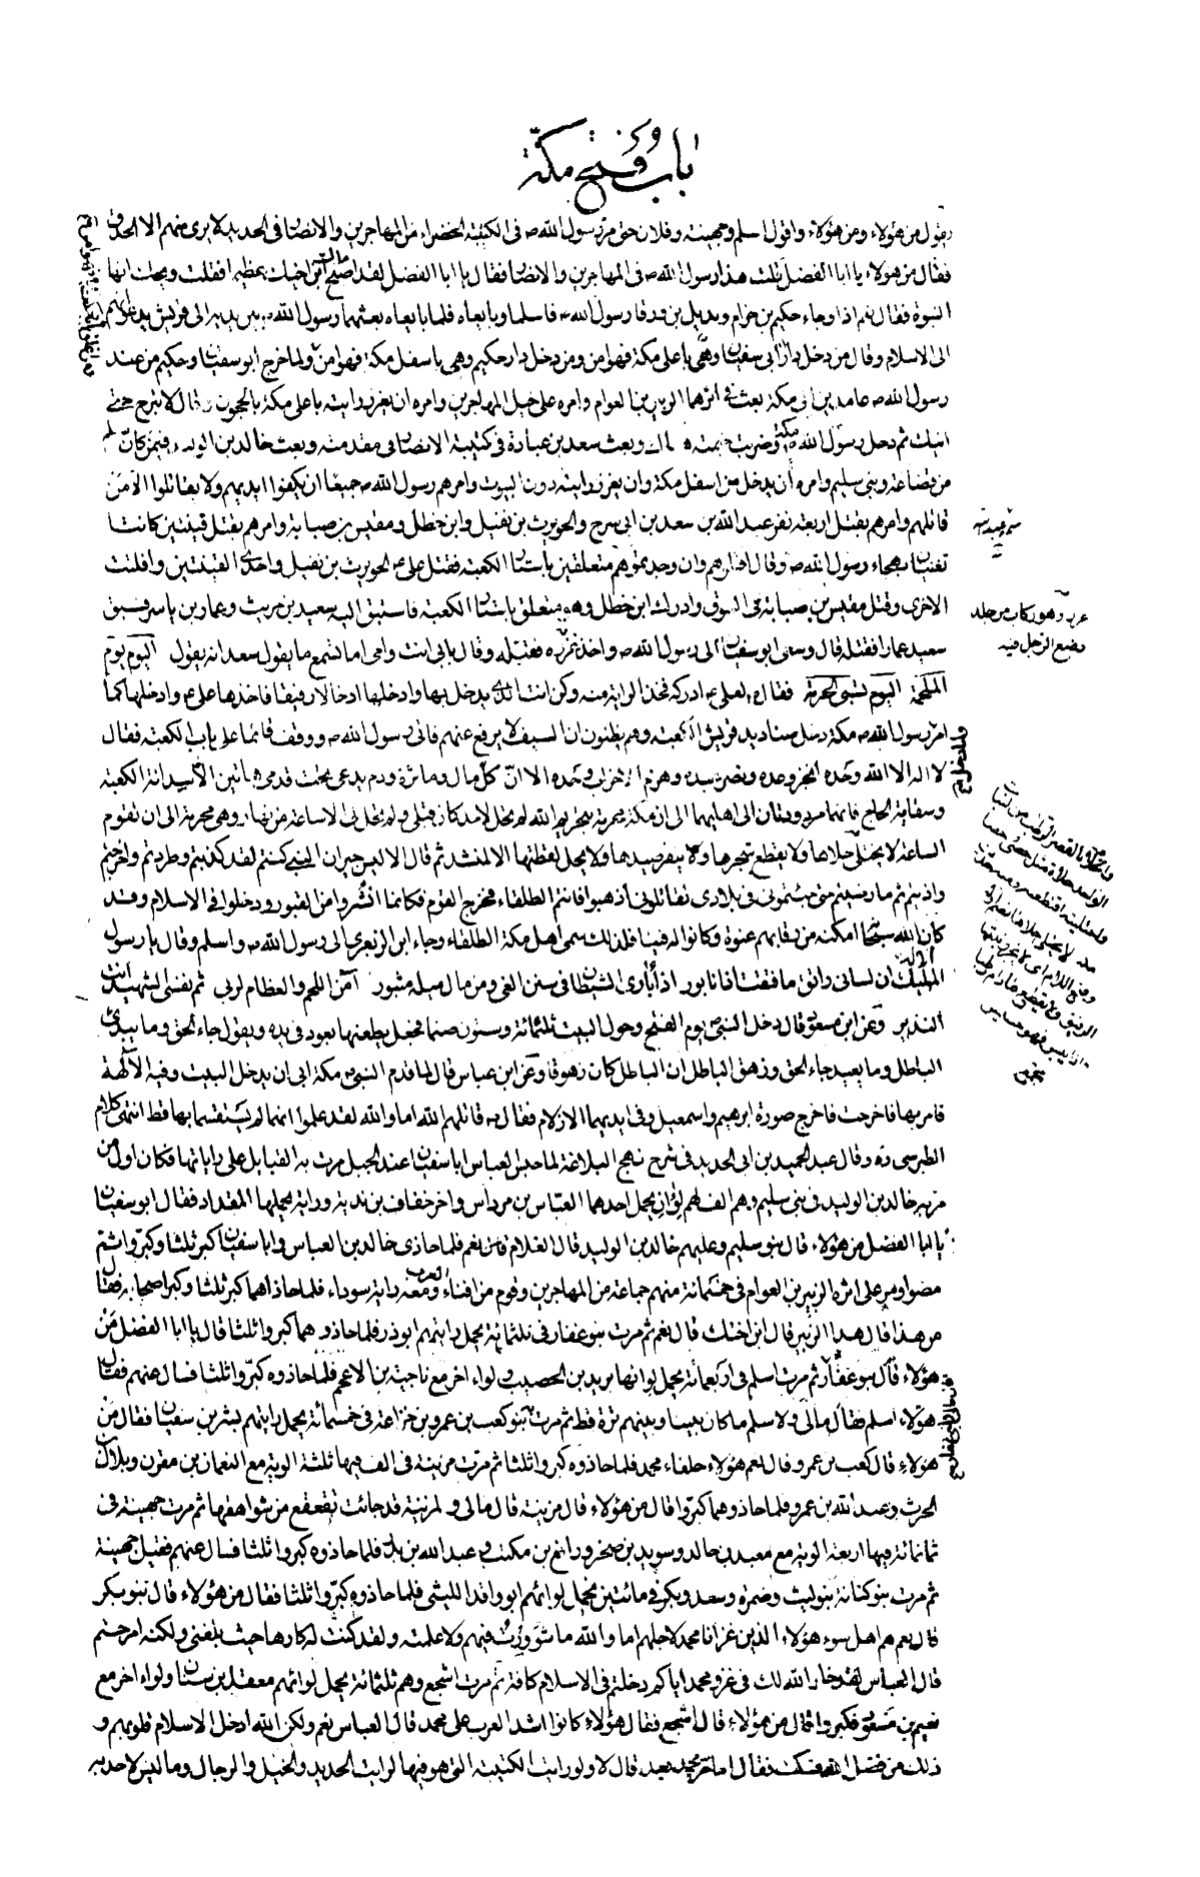 باب فتح مكة
يقول من هؤلاء ومن هؤلاء واقول اسلم وجهينة وفلان حتى مر رسول الله ص في الكتيبة الخضراء من المهاجرين والانصار في الحديد لا يرى منهم الا الحدق
فقال من هؤلاء يا ابا الفضل قلت هذا رسول الله ص في المهاجرين والانصار فقال يا ابا الفضل لقد اصبح ملك ابن اخيك عظيما فقلت ويحك انها
النبوة فقال نعم اذا وجاء حكيم بن حزام وبديل بن ورقا رسول الله ص فاسلما وبايعاه فلما بايعاه بعثهما رسول الله ص بين يديه الى قريش يدعوانهم
الى الاسلام وقال من دخل دار ابي سفيان وهي باعلى مكة فهو امن ومن دخل دار حكيم وهي باسفل مكة فهو امن ولما خرج ابو سفيان وحكيم من عند
رسول الله ص عامدين الى مكة بعث في اثرهما الزبير بن العوام وامره على خيل المهاجرين وامره ان يغرز رايته باعلى مكة بالحجون وقال لا تبرح حتى
اتيك ثم دخل رسول الله ص مكة وضربت خيمته هناك وبعث سعد بن عبادة في كتيبة الانصار في مقدمته وبعث خالد بن الوليد فيمن كان اسلم
من قضاعة وبني سليم وامره ان يدخل من اسفل مكة وان يغرز رايته دون البيوت وامرهم رسول الله ص جميعا ان يكفوا ايديهم ولا يقاتلوا الا من
قاتلهم وامرهم بقتل اربعة نفر عبد الله بن سعد بن ابي سرح والحويرث بن نفيل وابن خطل ومقيس بن صبابة وامرهم بقتل قينتين كانتا
تغنيان بهجاء رسول الله ص وقال اقتلوهم وان وجدتموهم متعلقين باستار الكعبة فقتل علي ع الحويرث بن نفيل واحدى القينتين وافلتت
الاخرى وقتل مقيس بن صبابة في السوق وادرك ابن خطل وهو متعلق باستار الكعبة فاستبق اليه سعيد بن حريث وعمار بن ياسر فسبق
سعيد عمارا فقتله قال وسعى ابو سفيان الى رسول الله ص واخذ غرزه فقبله وقال بابي انت وامي اما تسمع ما يقول سعد انه يقول اليوم يوم
الملحمة اليوم تسبى الحرمة فقال ص لعلي ع ادركه فخذ الراية منه وكن انت الذي يدخل بها وادخلها ادخالا رفيقا فاخذها علي ع وادخلها كما
امر رسول الله ص مكة دخل صناديد قريش الكعبة وهم يظنون ان السيف لا يرفع عنهم فاتى رسول الله ص ووقف قائما على باب الكعبة فقال
لا اله الا الله وحده انجز وعده ونصر عبده وهزم الاحزاب وحده الا ان كل مال وماثرة ودم يدعى تحت قدمي هاتين الا سدانة الكعبة
وسقاية الحاج فانهما مردودتان الى اهليهما الا ان مكة محرمة بتحريم الله لم تحل لاحد كان قبلي ولم تحل لي الا ساعة من نهار وهي محرمة الى ان تقوم
الساعة لا يختلى خلاها ولا يقطع شجرها ولا ينفر صيدها ولا يحل لقطتها الا لمنشد ثم قال الا لبئس جيران النبي كنتم لقد كذبتم وطردتم واخرجتم
واذيتم ثم ما رضيتم حتى جئتموني في بلادي تقاتلوني اذهبوا فانتم الطلقاء فخرج القوم فكانما انشروا من القبور ودخلوا في الاسلام وقد
كان الله سبحانه امكنه من رقابهم عنوة وكانوا له فيئا فلذلك سمي اهل مكة الطلقاء وجاء ابن الزبعري الى رسول الله ص واسلم وقال يا رسول
المليك ان لساني راتق ما فتقت اذ انا بور اذ اباري الشيطان في سنن الغي ومن مال ميله مثبور آمن اللحم والعظام لربي ثم نفسي الشهيد انت
النذير وعن ابن مسعود قال دخل النبي ص يوم الفتح وحول البيت ثلثمائة وستون صنما فجعل يطعنها بعود في يده ويقول جاء الحق وما يبدئ
الباطل وما يعيد جاء الحق وزهق الباطل ان الباطل كان زهوقا وعن ابن عباس قال لما قدم النبي ص مكة ابى ان يدخل البيت وفيه الالهة
فامر بها فاخرجت فاخرج صورة ابرهيم واسمعيل وفي ايديهما الازلام فقال ص قاتلهم الله اما والله لقد علموا انهما لم يستقسما بها قط انتهى كلام
الطبرسي ره وقال عبد الحميد بن ابي الحديد في شرح نهج البلاغة لما حبس العباس ابا سفيان عند الجبل مرت به القبايل على راياتها فكان اول من
مر به خالد بن الوليد في بني سليم وهم الف لهم لواآن يحمل احدهما العباس بن مرداس واخر خفاف بن ندبة وراية يحملها المقداد فقال ابو سفيان
يا ابا الفضل من هؤلاء قال بنو سليم وعليهم خالد بن الوليد قال الغلام قال نعم فلما حاذى خالد بن العباس وابا سفيان كبر ثلثا وكبروا ثم
مضوا ومر على اثره الزبير بن العوام في خمسمائة منهم جماعة من المهاجرين وقوم من افناء العرب ومعه راية سوداء فلما حاذاهما كبر ثلثا وكبر اصحابه فقال
من هذا قال هذا الزبير قال ابن اختك قال نعم ثم مرت بنو غفار في ثلثمائة يحمل رايتهم ابو ذر فلما حاذوهما كبروا ثلثا قال يا ابا الفضل من
هؤلاء قال بنو غفار ثم مرت اسلم في اربعمائة يحمل لوائها بريد بن الحصيب ولواء اخر مع ناجية بن الاعجم فلما حاذوه كبروا ثلثا فسال عنهم فقال
هؤلاء اسلم فقال مالي ولاسلم ما كان بيننا وبينهم ترة قط ثم مرت بنو كعب بن عمرو بن خزاعة في خمسمائة يحمل رايتهم بشر بن سفيان فقال من
هؤلاء قال كعب بن عمرو قال نعم هؤلاء حلفاء محمد فلما حاذوه كبروا ثلثا ثم مرت مزينة في الف فيها ثلثة الوية مع النعمان بن مقرن وبلال بن
الحرث وعبد الله بن عمرو فلما حاذوهما كبروا قال من هؤلاء قال مزينة قال مالي ولمزينة قد جائت تقعقع من شواهقها ثم مرت جهينة في
ثمانمائة فيها اربعة الوية مع معبد بن خالد وسويد بن صخر ورافع بن مكيث وعبد الله بن بدر فلما حاذوه كبروا ثلثا فسال عنهم فقيل جهينة
ثم مرت بنو كنانة بنو ليث وضمرة وسعد وبكر في مائتين يحمل لوائهم ابو واقد الليثي فلما حاذوه كبروا ثلثا فقال من هؤلاء قال بنو بكر
قال نعم هم اهل سوء هؤلاء الذين غزانا محمد لاجلهم اما والله ما شوورت فيهم ولا علمته ولقد كنت له كارها حيث بلغني ولكنه امر حتم
قال العباس لقد خار الله لك في غزو محمد اياكم ودخلتم في الاسلام كافة ثم مرت اشجع وهم ثلثمائة يحمل لوائهم معقل بن سنان ولواء اخر مع
نعيم بن مسعود فكبروا قال من هؤلاء قال اشجع فقال هؤلاء كانوا اشد العرب على محمد قال العباس نعم ولكن الله ادخل الاسلام قلوبهم و
ذلك من فضل الله فسكت فقال اما مر محمد بعد قال لا ولو رايت الكتيبة التي هو فيها لرايت الحديد والخيل والرجال وما ليس لاحد به